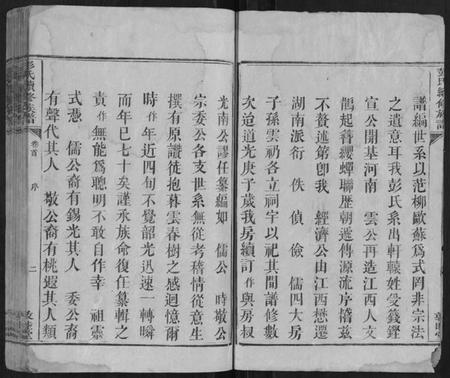 譜編世系以范柳歐蘇爲式罔非宗法
之遺意耳我彭氏系出軒轅姓受籛鏗
宣公開基河南 雲公再造江西人文
鵲起簪纓蟬聯歷朝遞傳源流序禧茲
不贅述第卽我 經濟公由江西懋遷
湖南派衍 佚 偵 儉 儒四大房
子孫雲礽各立祠宇以祀其間譜修數
次迨道光庚子歲我房續訂 作與房叔
光南公謬任纂編如 儒公 時敬公
宗委公各支世系無從考稽情從意生
撰有原讚徒抱暮雲春樹之感迴憶爾
時 作年近四旬不覺韶光迅速一轉瞬
而年已七十矣謹承族命復任纂輯之
責 作無能爲聰明不敢自作幸 祖靈
式憑 儒公裔有錫光其人 委公裔
有聲代其人 敬公裔有桃遐其人類
彭氏續修族譜
卷首 序
二